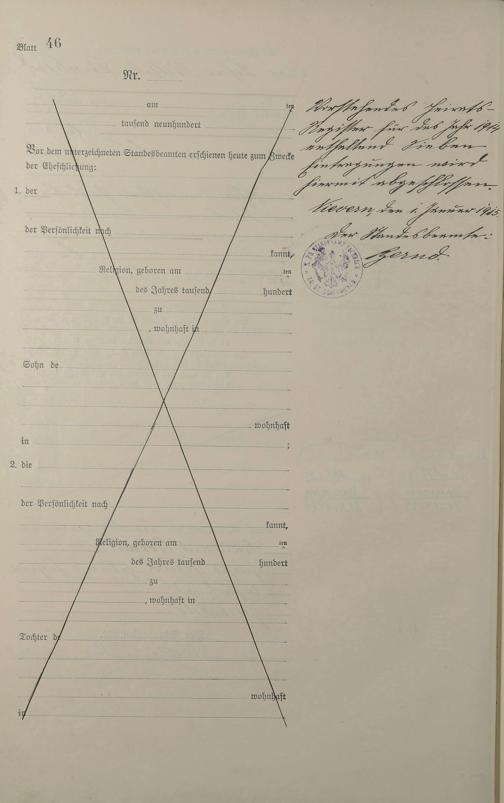 Blatt 46
Nr.
am ten
tausend neunhundert
Vor dem unterzeichneten Standesbeamten erschienen heute zum Zwecke
der Eheschließung:
1. der
der Persönlichkeit nach
kannt,
Religion, geboren am ten
des Jahres tausend hundert
zu
, wohnhaft in
Sohn de
wohnhaft
in ;
2. die
der Persönlichkeit nach
kannt,
Religion, geboren am ten
des Jahres tausend hundert
zu
, wohnhaft in
Tochter de
wohnhaft
in
Vorstehendes Heirats-
Register für das Jahr 1914
enthaltend Sieben
Eintragungen wird
hiermit abgeschlossen
Nievern, den 1. Januar 1915.
Der Standesbeamte: